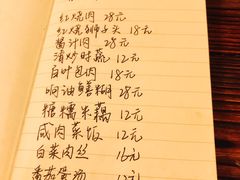 红烧肉 28元
红烧狮子头 18元
酱汁肉 28元
清炒时蔬 12元
百叶包肉 18元
响油鳝糊 28元
糖糯米藕 12元
咸肉菜饭 12元
白菜肉丝 16元
番茄蛋汤 12元